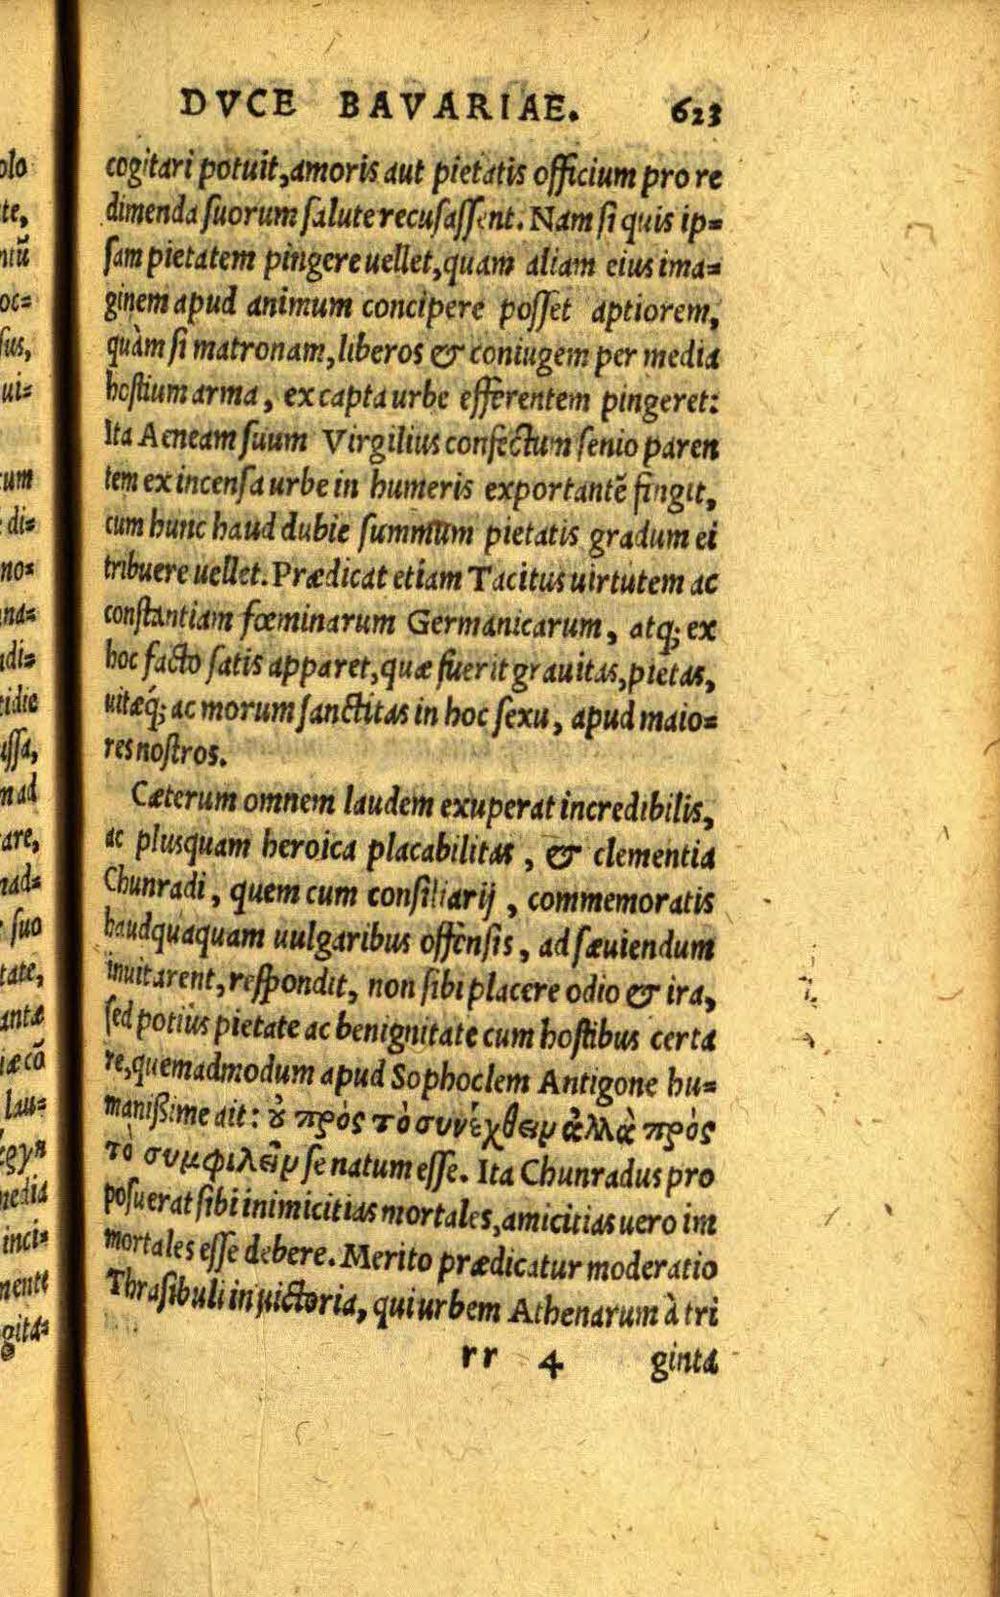 DVCE BAVARIAE. 623
cogitari potuit, amoris aut pietatis officium pro re
dimenda suorum salute recusassent. Nam si quis ip=
sam pietatem pingere uellet, quam aliam eius ima=
ginem apud animum concipere posset aptiorem,
quàm si matronam, liberos & coniugem per media
hostium arma, ex capta urbe efferentem pingeret:
Ita Aeneam suum Virgilius confectum senio paren
tem ex incensa urbe in humeris exportantẽ fingit,
cum hunc haud dubie summum pietatis gradum ei
tribuere uellet. Prædicat etiam Tacitus uirtutem ac
constantiam fœminarum Germanicarum, atq; ex
hoc facto satis apparet, quæ fuerit grauitas, pietas,
uitæq́; ac morum sanctitas in hoc sexu, apud maio=
res nostros.
Cæterum omnem laudem exuperat incredibilis,
ac plusquam heroica placabilitas, & clementia
Chunradi, quem cum consiliarij, commemoratis
haudquaquam uulgaribus offensis, ad sæuiendum
inuitarent, respondit, non sibi placere odio & ira,
sed potius pietate ac benignitate cum hostibus certa
re, quemadmodum apud Sophoclem Antigone hu=
manißime ait: ȣ̓ πρὸς τὸ συνέχθειν ἀλλὰ πρὸς
τὸ συμφιλεῖν se natum esse. Ita Chunradus pro
posuerat sibi inimicitias mortales, amicitias uero im
mortales esse debere. Merito prædicatur moderatio
Thrasibuli in uictoria, qui urbem Athenarum à tri
rr 4 ginta
olo
te,
ntũ
oc=
sus,
ui=
cum
di=
no=
na=
di=
tidie
issa,
nad
are,
nad=
suo
tate,
antæ
iæcõ
lau=
nedia
inci=
nente
gita=